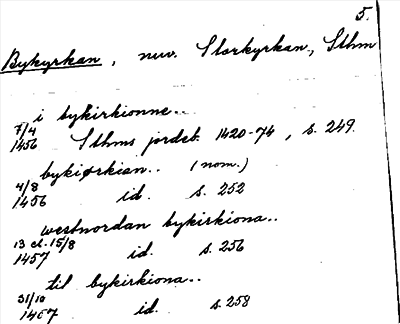 5.
Bykyrkan, nuv. Storkyrkan, Sthm
i bykirkionne..
7/4
1456 Sthms jordeb. 1420-74, s. 249.
bykiørkian.. (nom.)
4/8
1456 id. s. 252
westnordan bykirkiona..
13 el. 15/8
1457 id. s. 256
til bykirkiona..
31/10
1457 id. s. 258